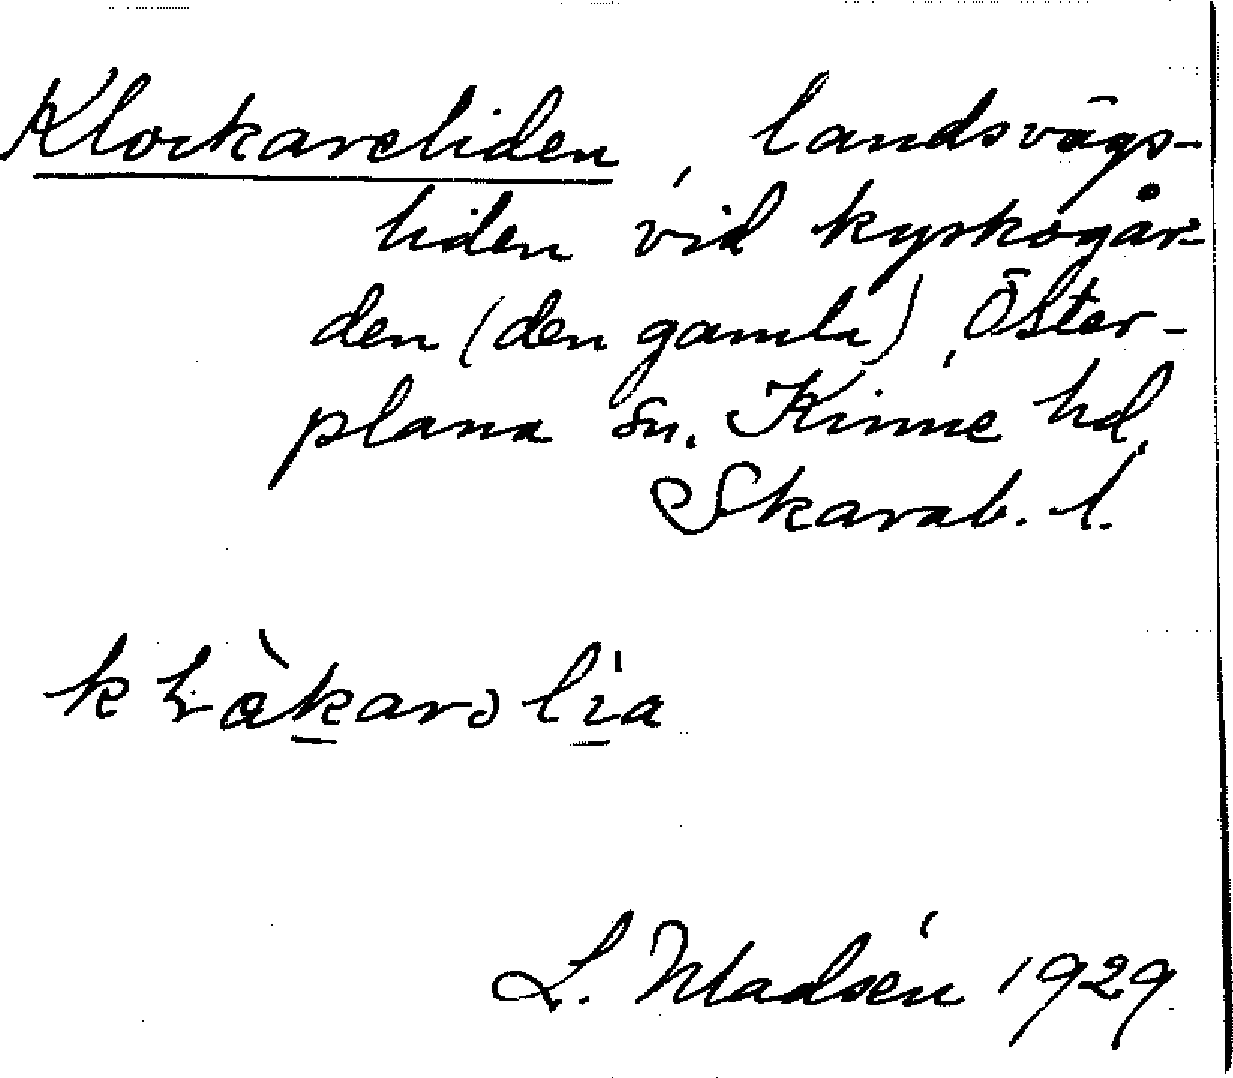 Klockareliden, landsvägs-
liden vid kyrkogår-
den (den gamla), Öster-
plana sn. Kinne hd,
Skarab. l.
L. Madsén 1929